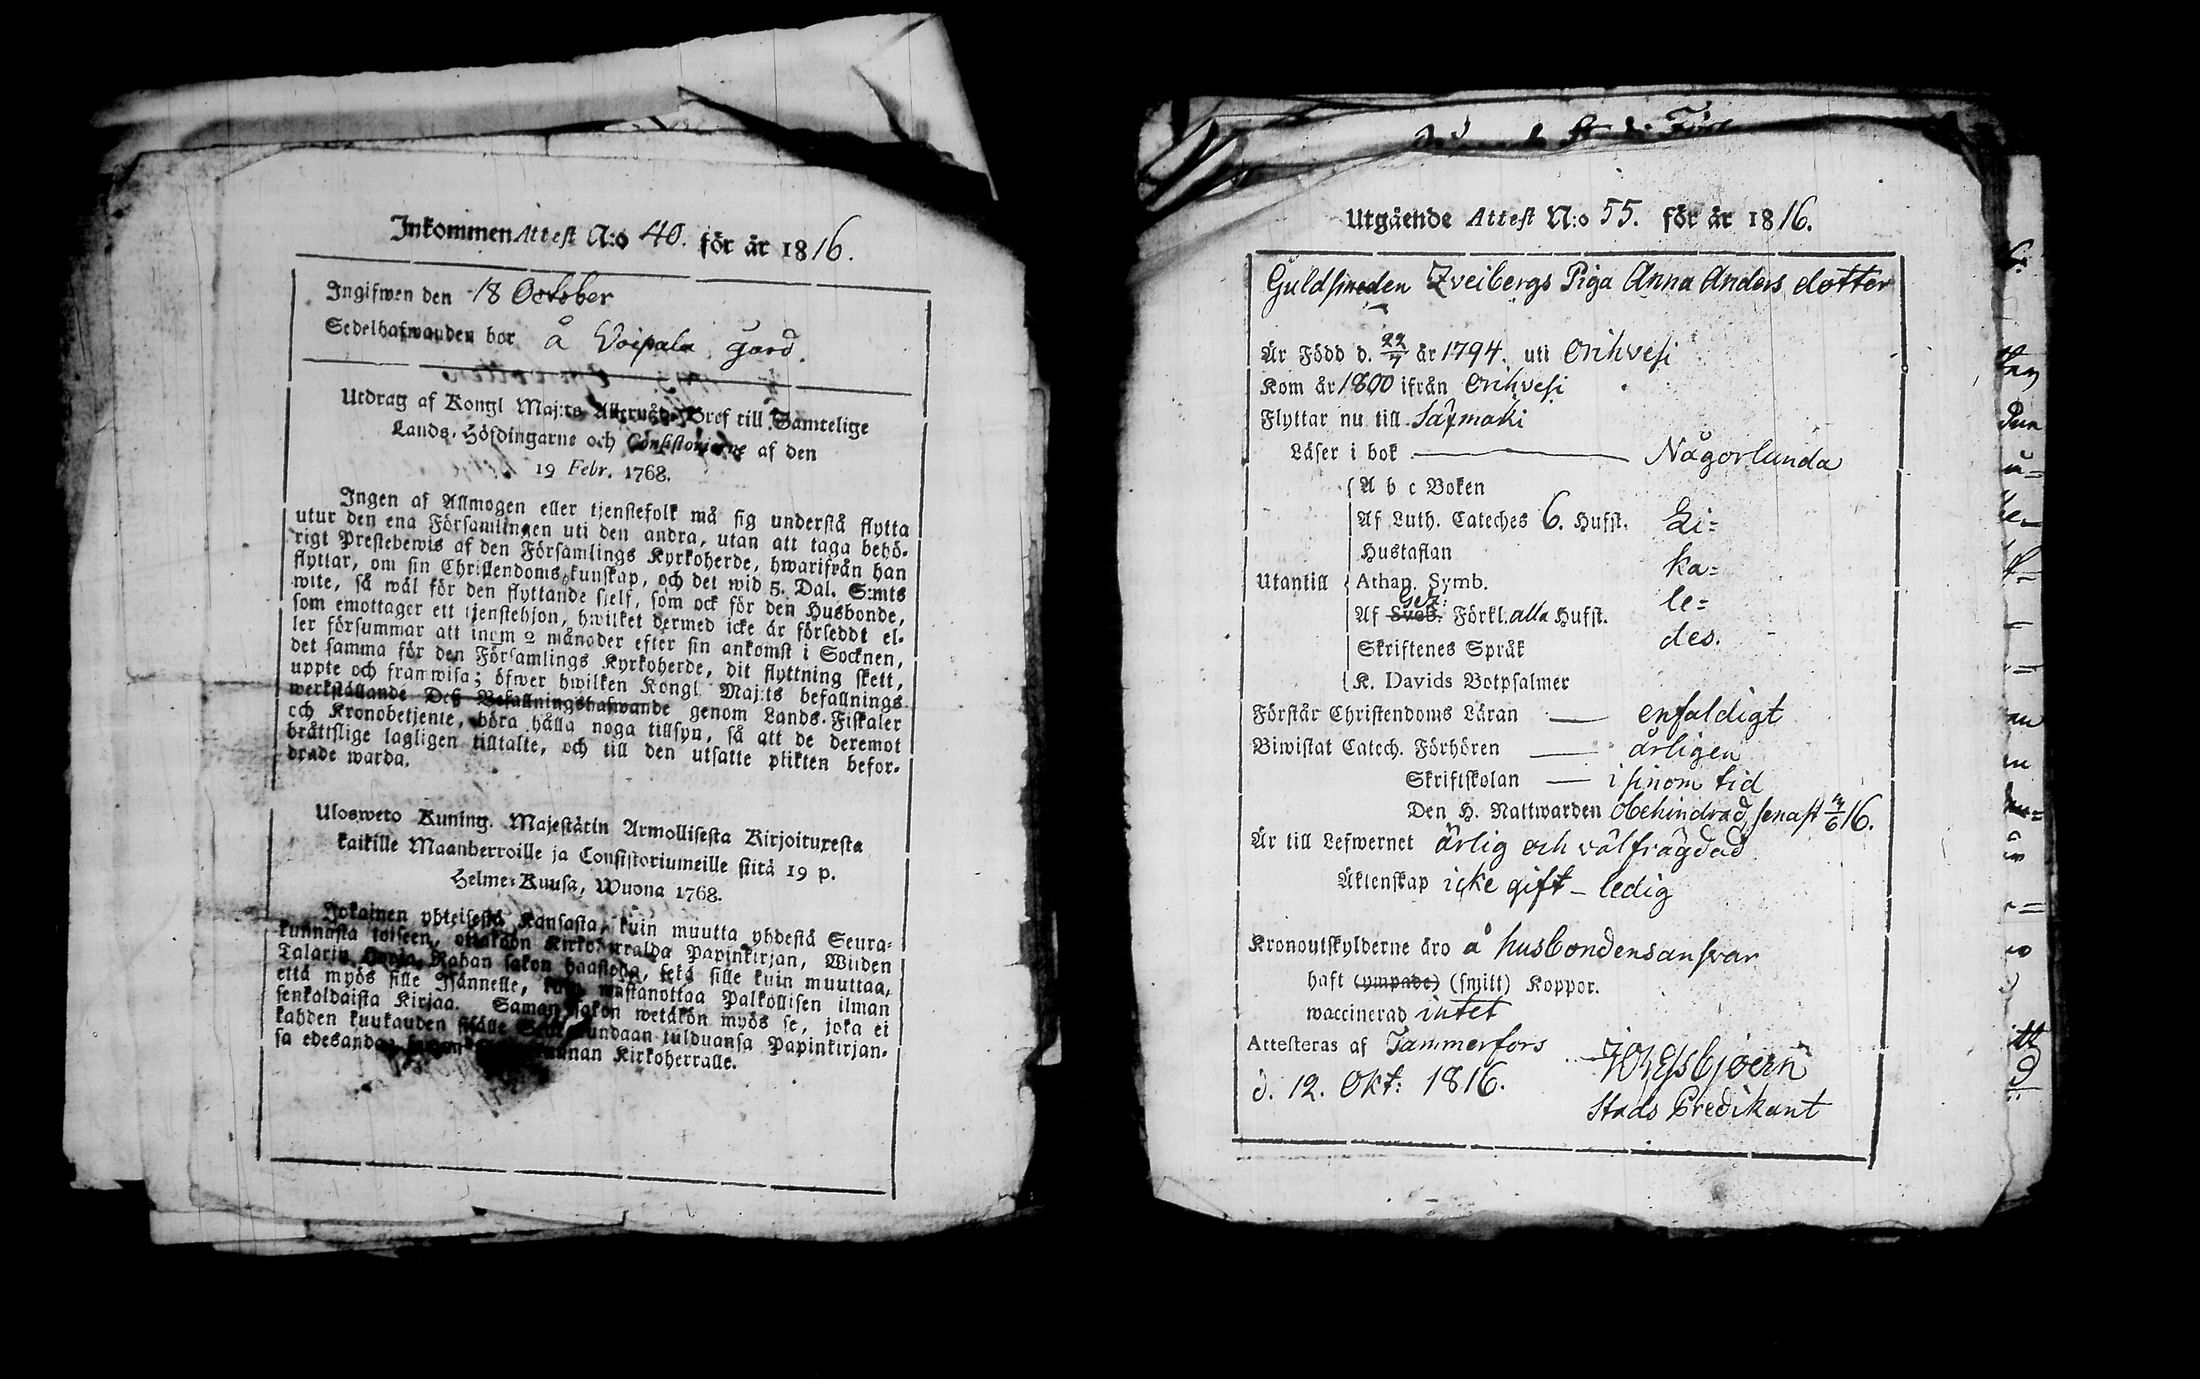 Inkommen Attest N:o 40. för år 1816.
Ingifwen den 18 October
Sedelhafwanden bor å Voipala gård.
Utdrag af Kongl Maj:ts Allernåd. Bref till Samtelige
Lands-Höfdingarne och Consistorierne af den
19 Febr. 1768.
Ingen af Allmogen eller tjenstefolk må sig understå flytta
utur den ena Församlingen uti den andra, utan att taga behö-
rigt Prestebewis af den Församlings Kyrkoherde, hwarifrån han
flyttar, om sin Christendoms kunskap, och det wid 5. Dal. S:mts
wite, så wäl för den flyttande sjelf, som ock för den Husbonde,
som emottager ett tjenstehjon, hwilket dermed icke är försedt el-
ler försummar att inom 2 månader efter sin ankomst i Socknen,
det samma för den Församlings Kyrkoherde, dit flyttning skett,
uppte och framwisa; öfwer hwilken Kongl Maj:ts befallnings
werkställande Deß Befallningshafwande genom Lands-Fiskaler
och Kronobetjente, böra hålla noga tillsyn, så att de deremot
bråttslige lagligen tilltalte, och till den utsatte plikten befor-
drade warda.
Ulosweto Kuning. Majestätin Armollisesta Kirjoituxesta
kaikille Maanherroille ja Consistoriumeille siitä 19 p.
Helme-Kuusa, Wuona 1768.
Jokainen yhteisestä Kansasta, kuin muutta yhdestä Seura-
kunnasta toiseen, ottakoon Kirkoherralda Papinkirjan, Wiiden
Talarin Kahan sakon haastolla, sekä sille kuin muuttaa,
että myös sille Isännelle, wastanottaa Palkollisen ilman
senkaldaista Kirjaa. Saman sakon wetäkön myös se, joka ei
kahden kuukauden sisälle Seurakundaan tulduansa Papinkirjan-
sa edesanda Kirkoherralle.
Utgående Attest N:o 55. för år 1816.
Guldsmeden Zveibergs Piga Anna Anders dotter
Är Född d. 22/7 år 1794. uti Orihvesi
Kom år 1800 ifrån Orihvesi
Flyttar nu till Säxmäki
Läser i bok — Någorlunda
A b c Boken
Af Luth. Cateches 6. Hufst. Li=
Hustaflan
Utantill Athan. Symb. ka=
Af Sveb. Gez: Förkl. alla Hufst. le=
Skriftenes Språk des.
K. Davids Botpsalmer
Förstår Christendoms Läran — enfaldigt
Biwistat Catech. Förhören — årligen
Skriftskolan — i sinom tid
Den H. Nattwarden obehindrad, senast /6 16.
Är till Lefwernet ärlig och välfrägdad
Äktenskap icke gift – ledig
Kronoutskylderne äro å husbondens ansvar
haft (ympade) (smitt) Koppor.
waccinerad intet
Attesteras af Tammerfors
d. 12. Okt: 1816.
Stads Predikant